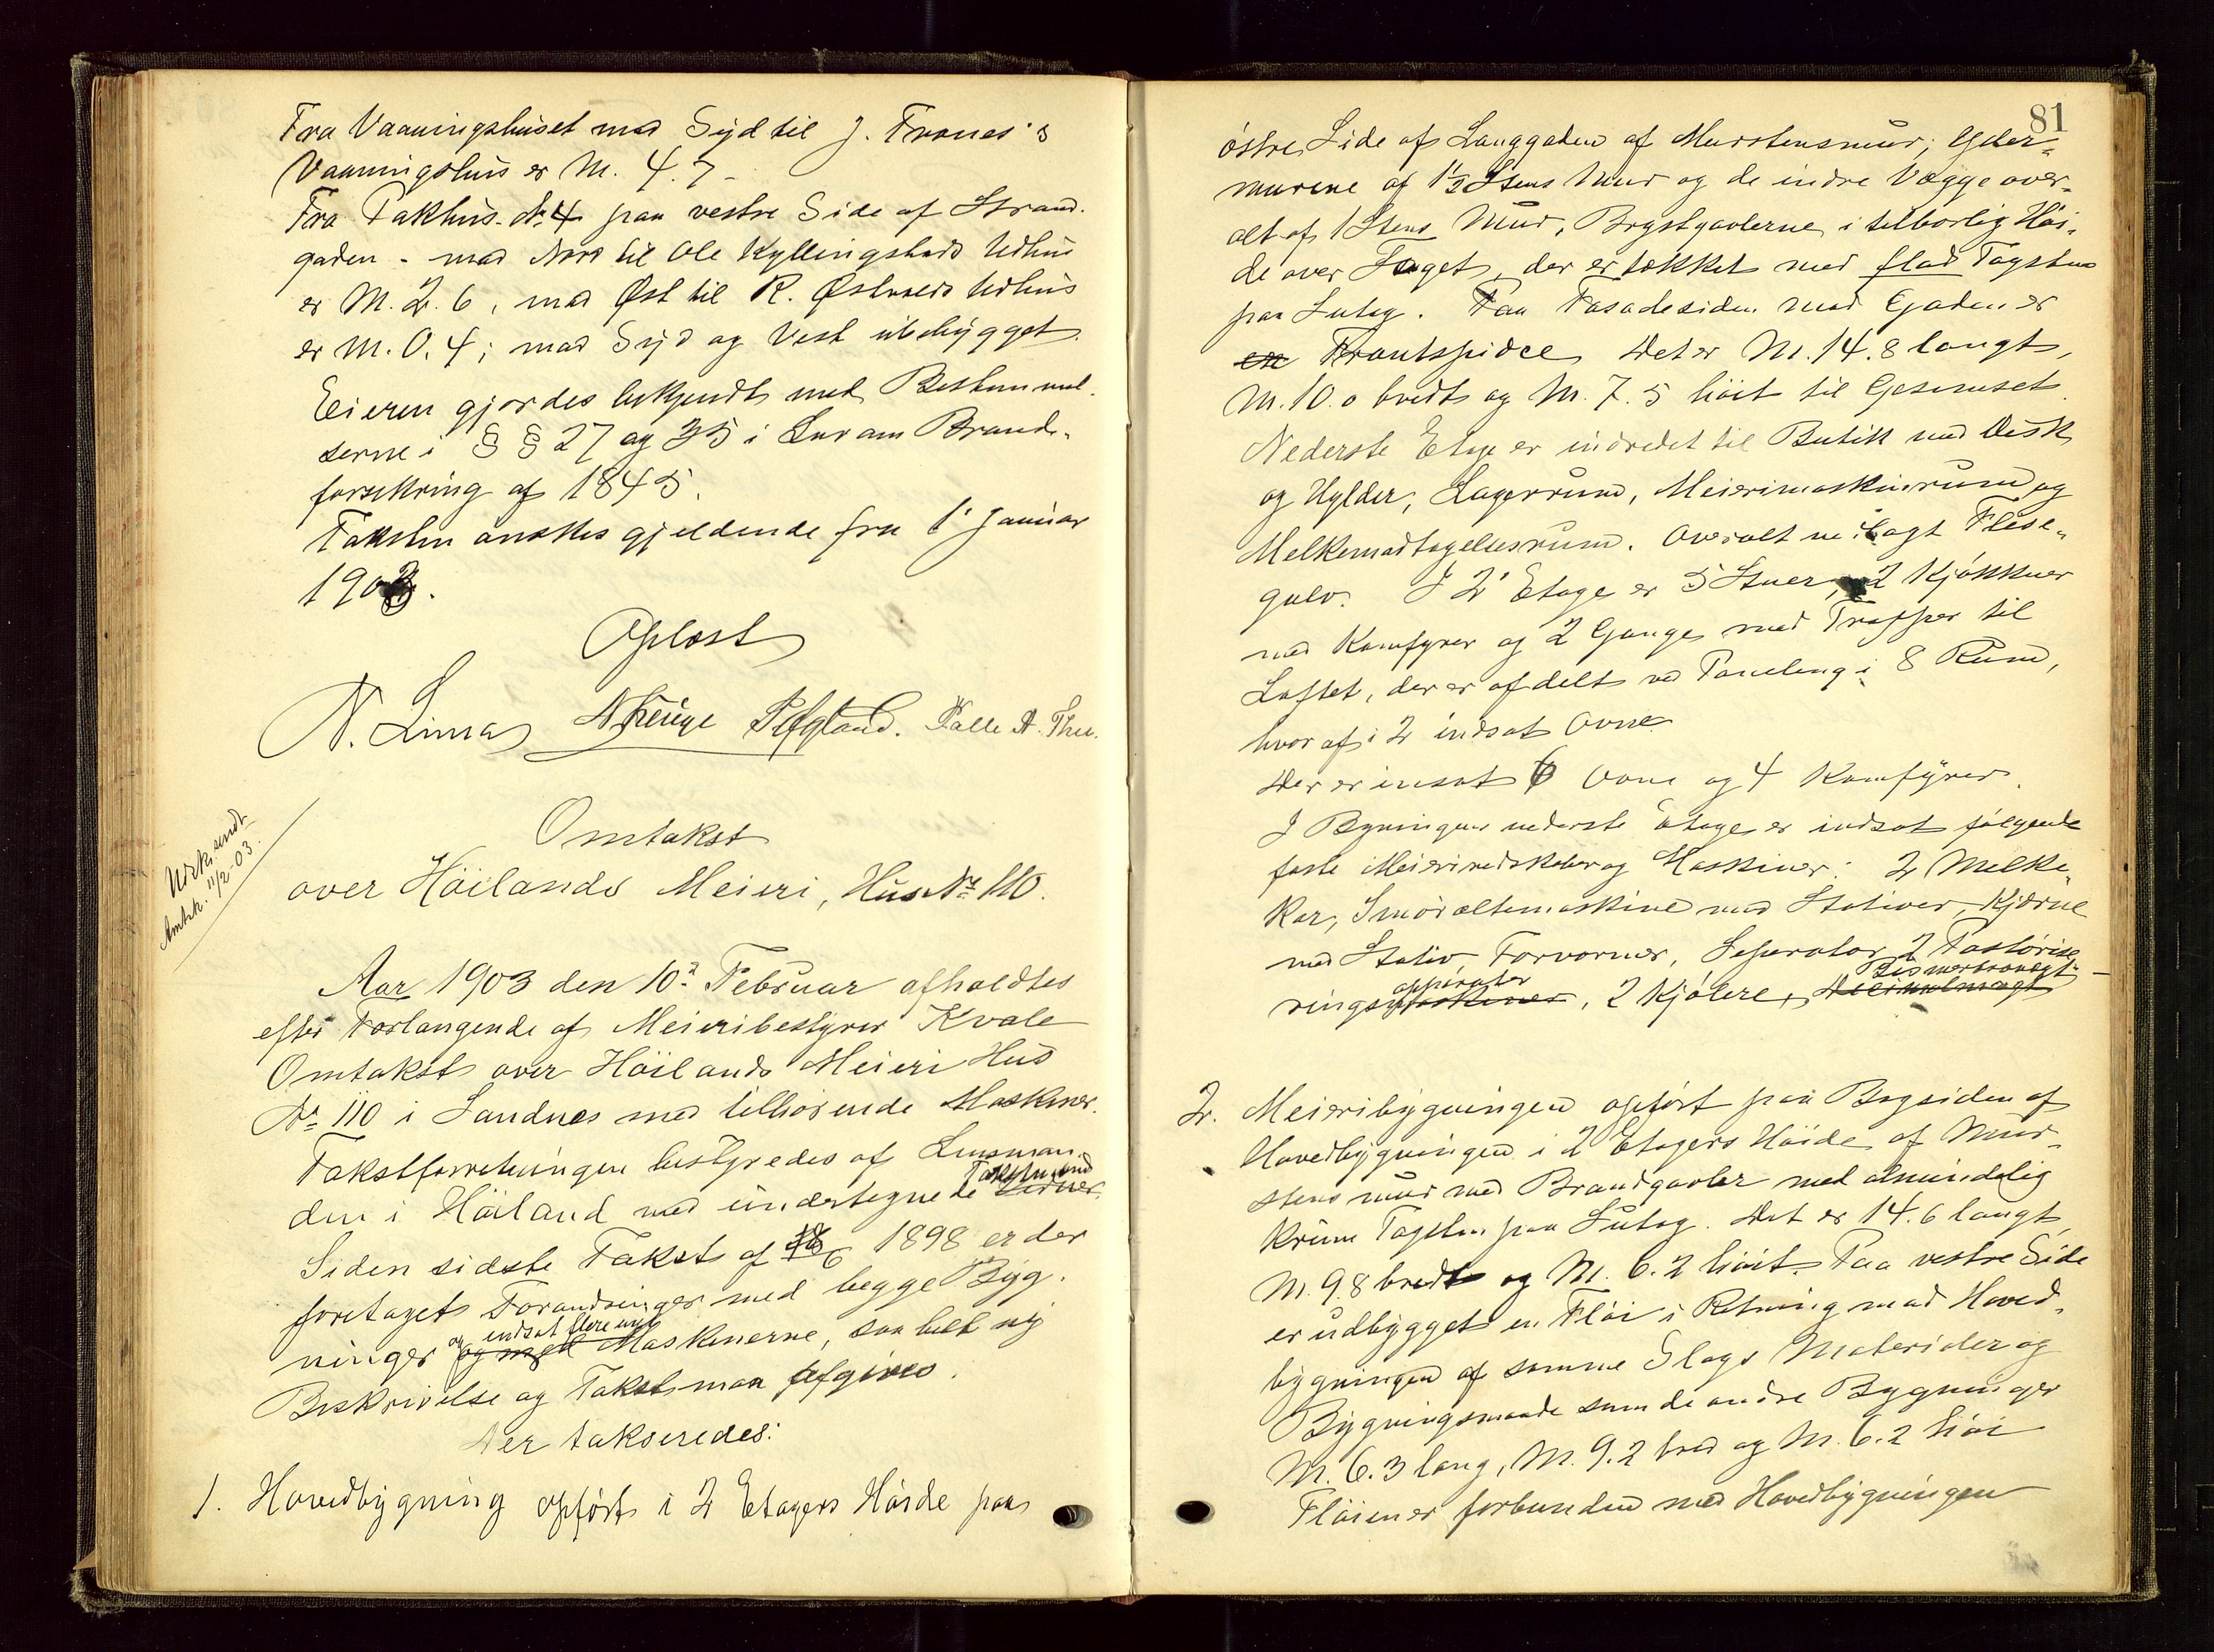 Fra Vaaningshuset mod Syd til J. Frones's
Vaaningshus er M. 4.7 -
Fra Pakhus No 4 paa vestre Side af Strand-
gaden - mod Nord til Ole Kyllingstads Udhus
er M. 2.6, mod Øst til R. Østraads Udhus
er M. 0.4; mod Syd og Vest ubebygget.
Eieren gjordes bekjendt med Bestemmel-
serne i §§ 27 og 35 i Lov om Brand-
forsikring af 1845.
Taksten ønskes gjeldende fra 1' Januar
1903.
Oplæst
N. Lima Palle A. Thu.
Udsk. sendt
Amtsk. 11/2-03.
Omtakst
over Höilands Meieri, Hus No 110.
Aar 1903 den 10de Februar afholdtes
efter Forlangende af Meieribestyrer Kvale
Omtakst over Höilands Meieri Hus
No 110 i Sandnes med tilhörende Maskiner.
Takstforretningen bestyredes af Lensman-
den i Höiland med undertegnede Takstmænd
Siden sidste Takst af 18/6 1898 er der
foretaget Forandringer med begge Byg-
ninger og indsat flere nye Maskinerne, saa helt ny
Beskrivelse og Takst maa afgives.
Der takseredes:
1. Hovedbygning opfört i 2 Etagers Höide paa
81
östre Side af Langgaden af Murstensmur; Yder-
murene af 1½ Stens Mur og de indre Vægge over-
alt af 1 Stens Mur, Brystgavlerne i tilbörlig Höi-
de over Taget, der er tækket med flad Tagsten
paa Sutag. Paa Fasadesiden mod Gaden er
en Frontspidce. Det er M. 14.8 langt,
M. 10.0 bredt og M. 7.5 höit til Gesimset.
Nederste Etage er indredet til Butik med Disk
og Hylder, Lagerrum, Meierimaskinrum og
Melkemodtagelsesrum. Overalt nedlagt Flise-
gulv. I 2' Etage er 5 Stuer, 2 Kjökkner
med Komfyrer og 2 Gange med Trapper til
Loftet, der er afdelt ved Paneling i 8 Rum,
hvoraf i 2 indsat Ovne.
Der er insat 6 Ovne og 4 Komfyrer.
I Bygningens nederste Etage er indsat fölgende
faste Meieriredskaber og Maskiner: 2 Melke-
kar, Smöræltemaskine med Stativer, Kjærne
med Stativ, Forvarmer, Separator, 2 Pastörise-
ringsapparater, 2 Kjölere, Bismerbrovægt -
2. Meieribygningen opfört paa Bagsiden af
Hovedbygningen i 2 Etagers Höide af Mur-
stens mur med Brandgavler med almindelig
krum Tagsten paa Sutag. Det er 14.6 langt,
M. 9.8 bredt og M. 6.2 höit. Paa vestre Side
er udbygget en Flöi i Retning mod Hoved-
bygningen af samme Slags Materialer og
Bygningsmaade som de andre Bygninger
M. 6.3 lang, M. 9.2 bred og M. 6.2 höi
Flöien er forbunden med Hovedbygningen